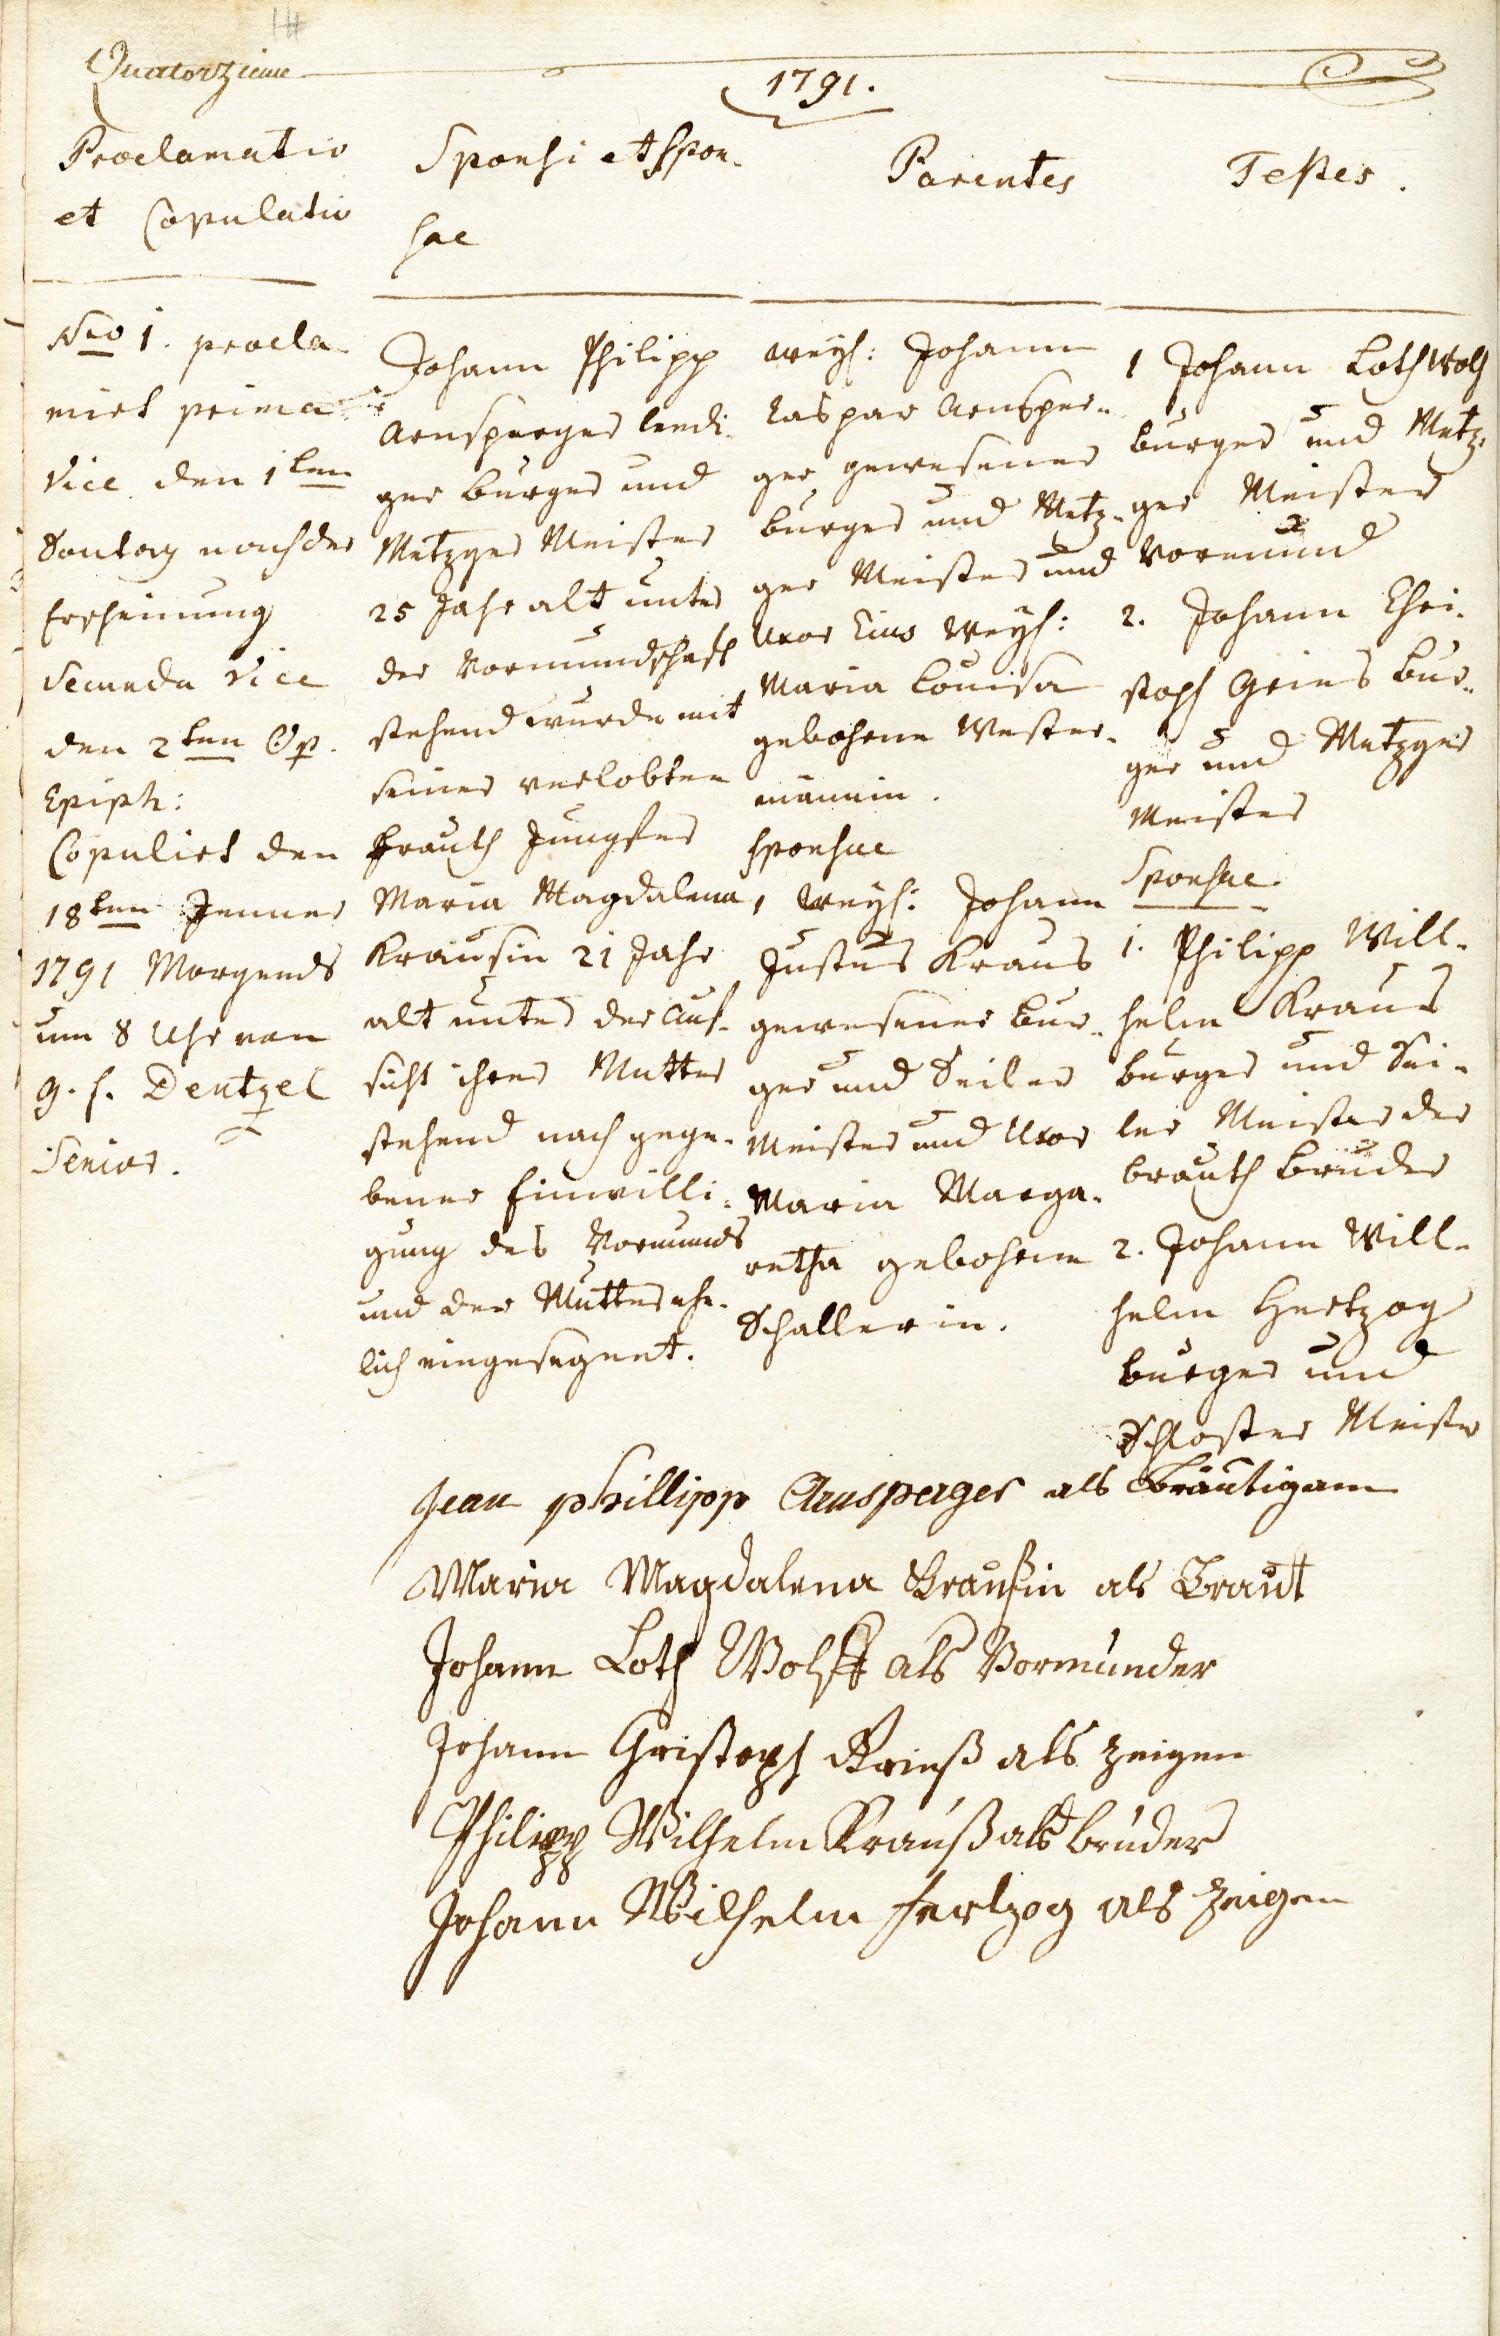 14
Quatorzieme
1791.
Proclamatio
et Copulatio
Sponsi et Spon-
sae
Parentes
Testes.
Nro 1. procla
mirt prima
Vice den 1ten
Sontag nach der
Erscheinung
Secunda Vice
den 2ten
Epiph:
Copulirt den
18ten Jenner
1791 Morgends
um 8 Uhr von
G. F. Dentzel
Senior.
Johann Philipp
Arnsperger leedi-
ger burger und
Metzger Meister
25 Jahr alt unter
der Vormundschaft
stehend wurde mit
seiner verlobten
brauth Jungfer
Maria Magdalena
Krausin 21 Jahr
alt unter der Auf-
sicht ihrer Mutter
stehend nach gege-
bener Einwilli-
gung des Vormunds
und der Mutter ehe-
lich eingesegnet.
weyl: Johann
Caspar Arnsper-
ger gewesener
burger und Metz-
ger Meister und
Uxor Eius Weyl:
Maria Louisa
gebohrne Wester-
männin.
Sponsae
1 Weyl: Johann
Justus Kraus
gewesener bur-
ger und Seiler
Meister und Uxor
Maria Marga-
retha gebohrne
Schallerin.
1 Johann Loth Wolf
burger und Metz-
ger Meister
Vormund
2. Johann Chri-
stoph Gries bur-
ger und Metzger
Meister
Sponsae
1. Philipp Will-
helm Kraus
burger und Sei-
ler Meister der
brauth bruder
2. Johann Will-
helm Hertzog
burger und
Schlosser Meister
Jean phillipp Arnsperger als Bräutigam
Maria Magdalena Kraußin als Braut
Johann Loth Wolff als Vormünder
Johann Gristoph Krieß als zeigen
Philipp Wilhelm Krauß als bruder
Johann Wilhelm Hertzog als zeigen